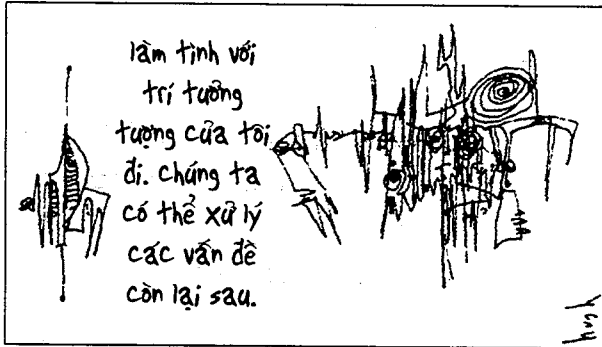 làm tình với
trí tưởng
tượng của tôi
đi. Chúng ta
có thể xử lý
các vấn đề
còn lại sau.